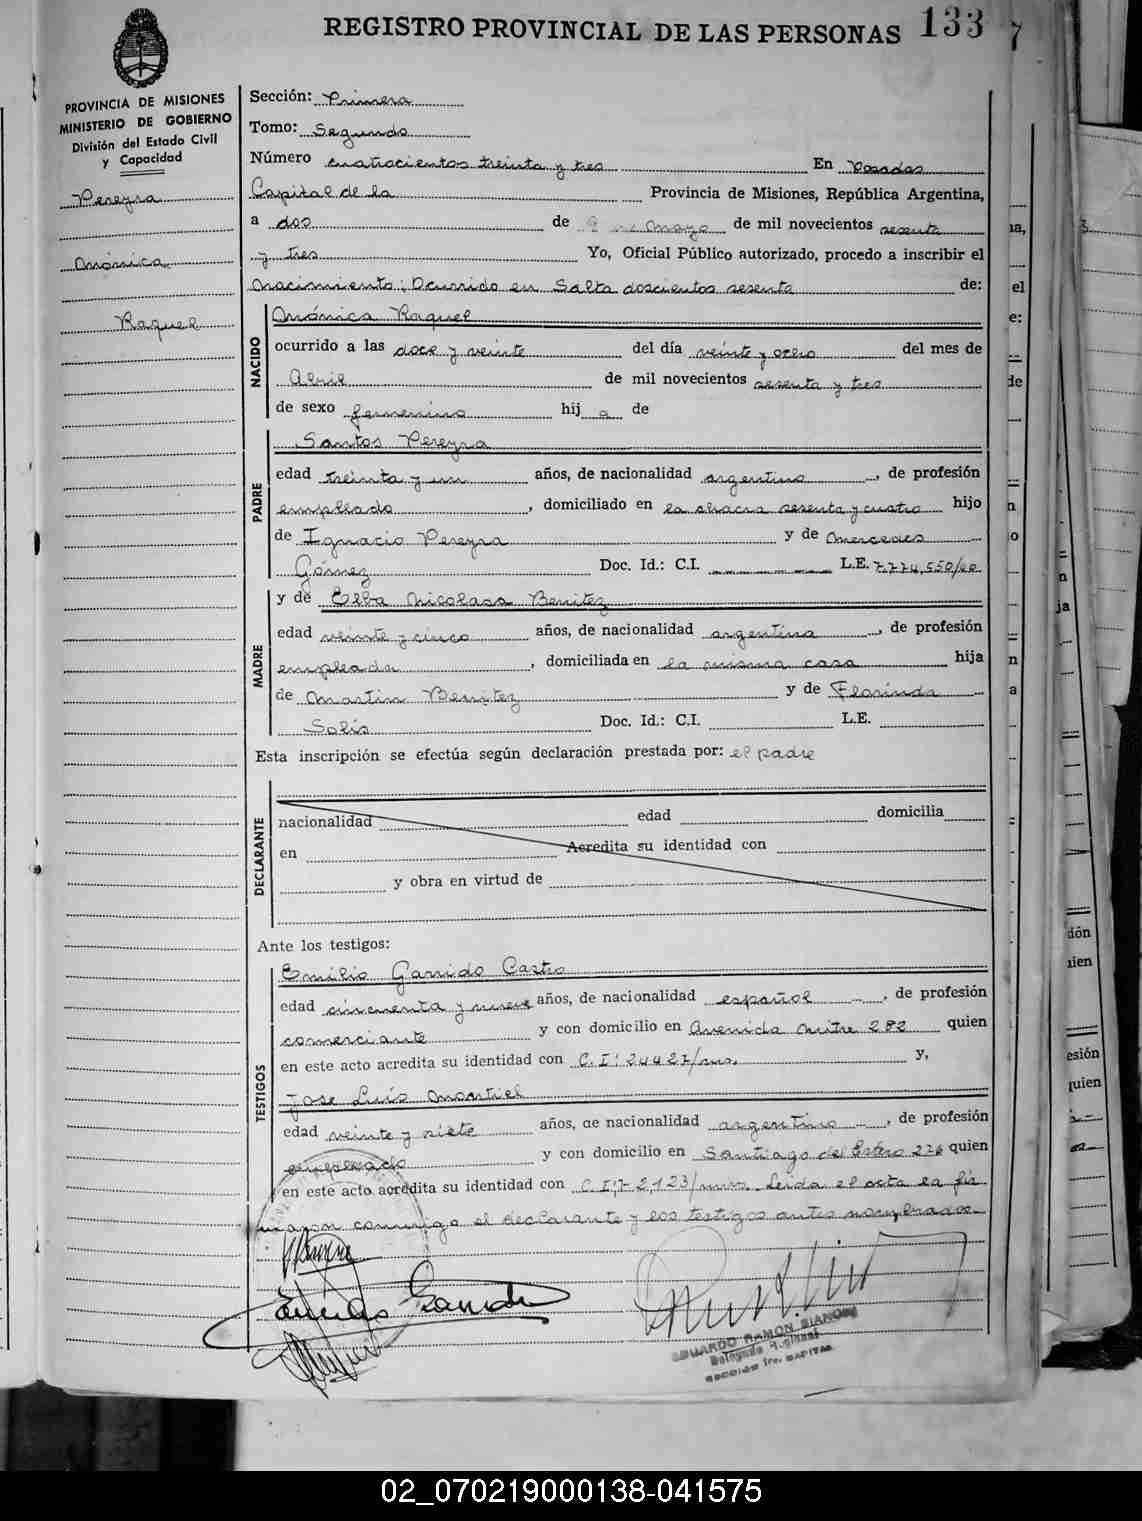 REGISTRO PROVINCIAL DE LAS PERSONAS 133
7
PROVINCIA DE MISIONES
MINISTERIO DE GOBIERNO
División del Estado Civil
y Capacidad
Pereyra
Mónica
Raquel
Sección: Primera
Tomo: Segundo
Número cuatrocientos treinta y tres En Posadas
Capital de la Provincia de Misiones, República Argentina,
a dos de de Mayo de mil novecientos sesenta
y tres Yo, Oficial Público autorizado, procedo a inscribir el
nacimiento: Ocurrido en Salta doscientos sesenta de:
NACIDO
Mónica Raquel
ocurrido a las doce y veinte del día veinte y ocho del mes de
Abril de mil novecientos sesenta y tres
de sexo femenino hij a de
PADRE
Santos Pereyra
edad treinta y un años, de nacionalidad argentino, de profesión
empleado, domiciliado en la chacra sesenta y cuatro hijo
de Ignacio Pereyra y de Mercedes
Gómez Doc. Id.: C.I. L.E. 7.774.550/00
MADRE
y de Elba Nicolasa Benitez
edad veinte y cinco años, de nacionalidad argentina, de profesión
empleada, domiciliada en la misma casa hija
de Martin Benitez y de Florinda
Solis Doc. Id.: C.I. L.E.
Esta inscripción se efectúa según declaración prestada por: el padre
DECLARANTE
nacionalidad edad domicilia
en Acredita su identidad con
y obra en virtud de
Ante los testigos:
TESTIGOS
Emilio Garrido Castro
edad cincuenta y nueve años, de nacionalidad español, de profesión
comerciante y con domicilio en Avenida Mitre 282 quien
en este acto acredita su identidad con C.I: 24427/mns. y,
Jose Luis Montiel
edad veinte y siete años, de nacionalidad argentino, de profesión
empleado y con domicilio en Santiago del Estero 276 quien
en este acto acredita su identidad con C.I: 72,123/mns. Leida el acta la fir
maron conmigo el declarante y los testigos antes nombrados.
Emilio Garrido
EDUARDO RAMON BIANCHI
Delegado Regional
SECCION 1ra. CAPITAL
02_070219000138-041575